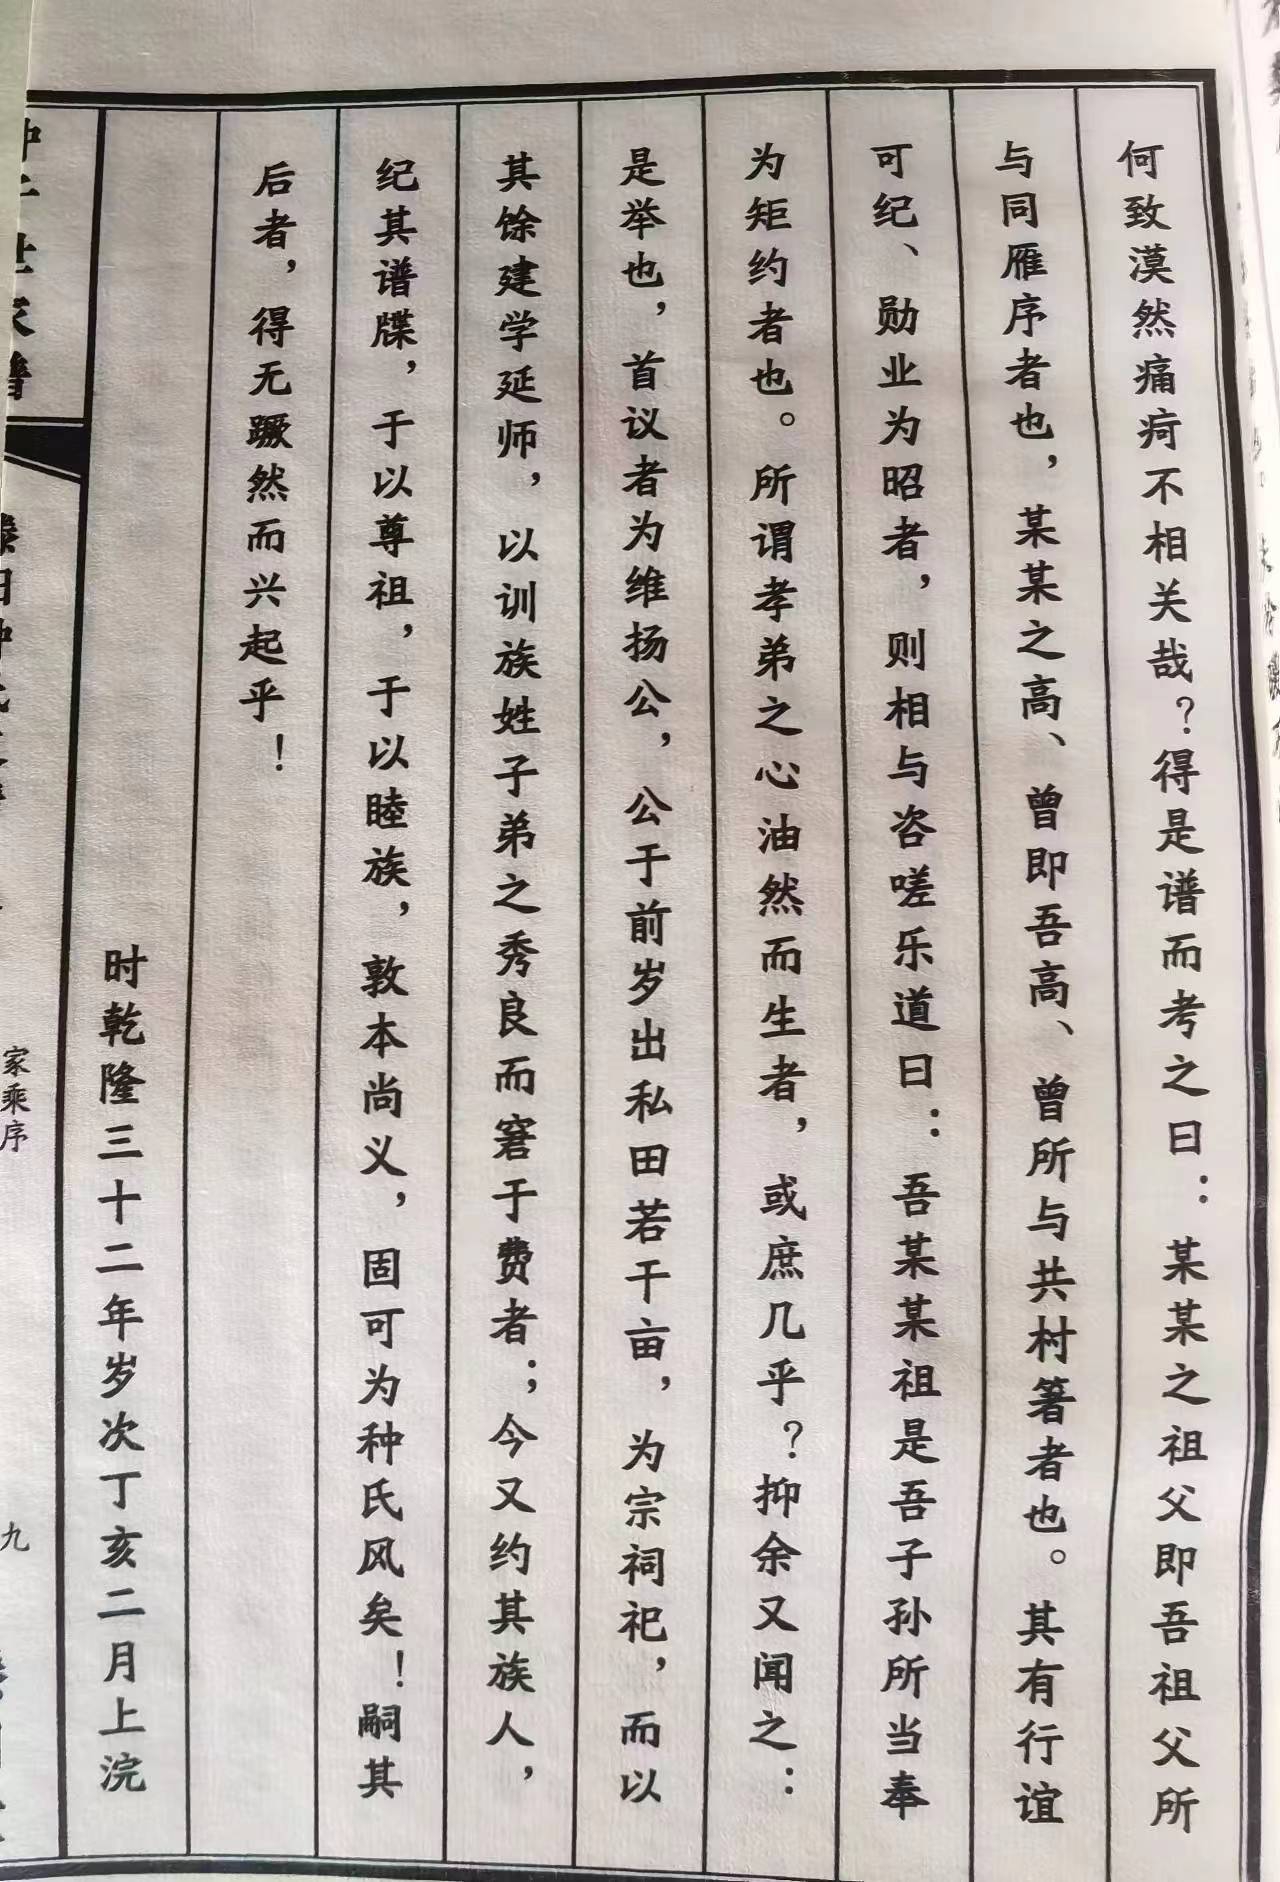 何致漠然痛疴不相关哉？得是谱而考之曰：某某之祖父即吾祖父所
与同雁序者也，某某之高、曾即吾高、曾所与共村箸者也。其有行谊
可纪、勋业为昭者，则相与咨嗟乐道曰：吾某某祖是吾子孙所当奉
为矩约者也。所谓孝弟之心油然而生者，或庶几乎？抑余又闻之：
是举也，首议者为维扬公，公于前岁出私田若干亩，为宗祠祀，而以
其馀建学延师，以训族姓子弟之秀良而窘于费者；今又约其族人，
纪其谱牒，于以尊祖，于以睦族，敦本尚义，固可为种氏风矣！嗣其
后者，得无蹶然而兴起乎！
时乾隆三十二年岁次丁亥二月上浣
家乘序
九